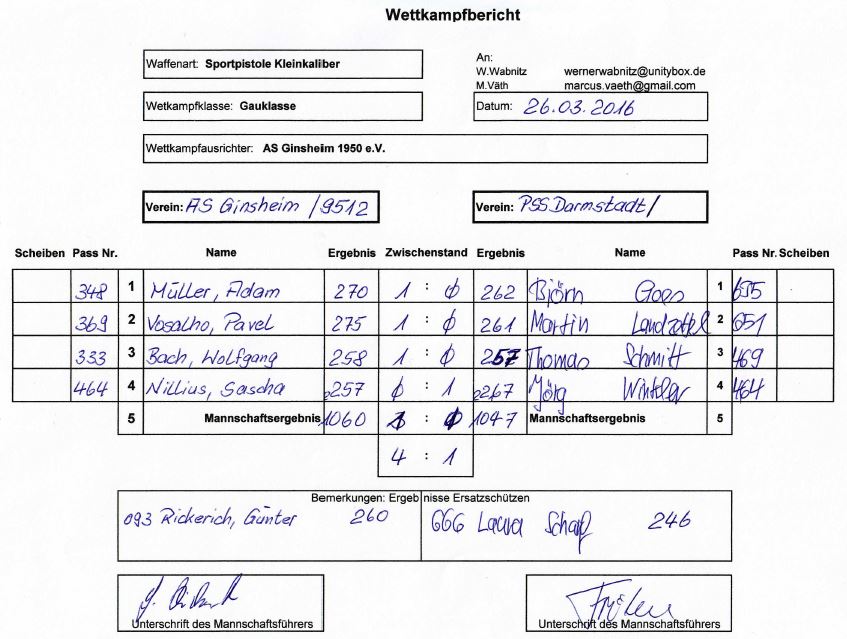 Wettkampfbericht
Waffenart: Sportpistole Kleinkaliber
An:
W.Wabnitz wernerwabnitz@unitybox.de
M.Väth marcus.vaeth@gmail.com
Wetkampfklasse: Gauklasse
Datum: 26.03.2016
Wettkampfausrichter: AS Ginsheim 1950 e.V.
Verein: AS Ginsheim /9512 Verein: PSS Darmstadt/
Scheiben Pass Nr. Name Ergebnis Zwischenstand Ergebnis Name Pass Nr. Scheiben
348 1 Müller, Adam 270 1 : 0 262 Björn 1 655
369 2 Vosalho, Pavel 275 1 : 0 261 Martin Landzettel 2 651
333 3 Bach, Wolfgang 258 1 : 0 257 Thomas Schmitt 3 469
464 4 Nillius, Sascha 257 0 : 1 267 Jörg Winkler 4 464
5 Mannschaftsergebnis 1060 1 : 0 1047 Mannschaftsergebnis 5
4 : 1
Bemerkungen: Ergebnisse Ersatzschützen
093 Rickerich, Günter 260 666 Laura Scharf 246
Unterschrift des Mannschaftsführers Unterschrift des Mannschaftsführers